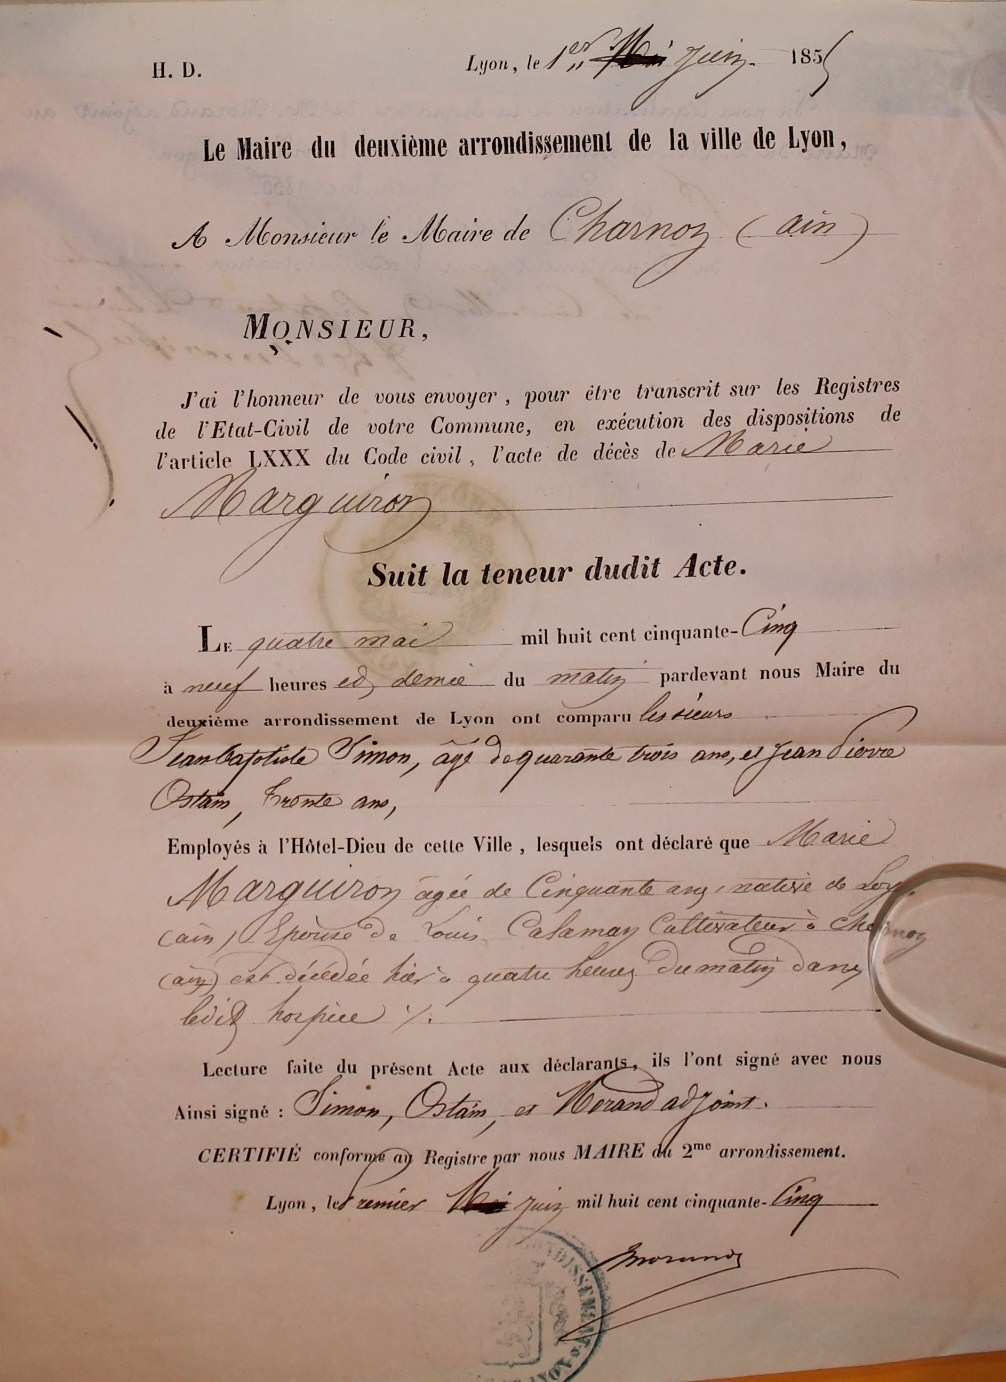 H. D.
Lyon, le 1er Mai Juin 1855
Le Maire du deuxième arrondissement de la ville de Lyon,
A Monsieur le Maire de Charnoz (ain)
MONSIEUR,
J'ai l'honneur de vous envoyer, pour être transcrit sur les Registres
de l'Etat-Civil de votre Commune, en exécution des dispositions de
l'article LXXX du Code civil, l'acte de décès de Marie
Marguiron
Suit la teneur dudit Acte.
LE quatre mai mil huit cent cinquante-Cinq
à neuf heures et demie du matin pardevant nous Maire du
deuxième arrondissement de Lyon ont comparu les sieurs
Jean baptiste Simon, âgé de quarante trois ans, et Jean Pierre
Ostain, trente ans,
Employés à l'Hôtel-Dieu de cette Ville, lesquels ont déclaré que Marie
Marguiron âgée de Cinquante ans, native de
(ain) Epouse de Louis Calaman Cultivateur à Charnoz
(ain) est décédée hier à quatre heures du matin dans
ledit hospice ./.
Lecture faite du présent Acte aux déclarants, ils l'ont signé avec nous
Ainsi signé : Simon, Ostain, et Morand adjoint.
CERTIFIÉ conforme au Registre par nous MAIRE du 2me arrondissement.
Lyon, le Premier Mai juin mil huit cent cinquante-Cinq
Morand